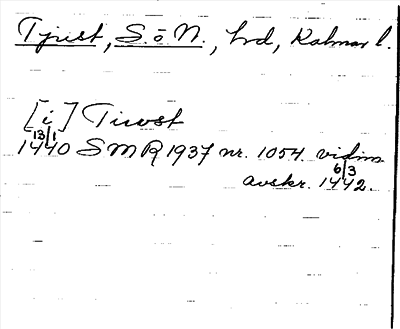 Tjust, S. o N., hd, Kalmar l.
[i] Tiwst
13/1
1440 SMR 1937 nr. 1054 vidim.
6/3
avskr. 1442.